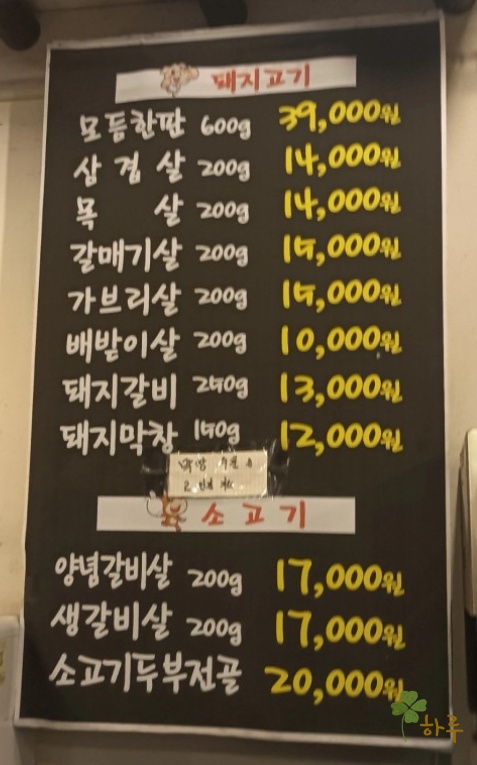 돼지고기
모듬한판 600g 39,000원
삼겹살 200g 14,000원
목살 200g 14,000원
갈매기살 200g 15,000원
가브리살 200g 15,000원
배받이살 200g 10,000원
돼지갈비 250g 13,000원
돼지막창 150g 12,000원
소고기
양념갈비살 200g 17,000원
생갈비살 200g 17,000원
소고기두부전골 20,000원
하루